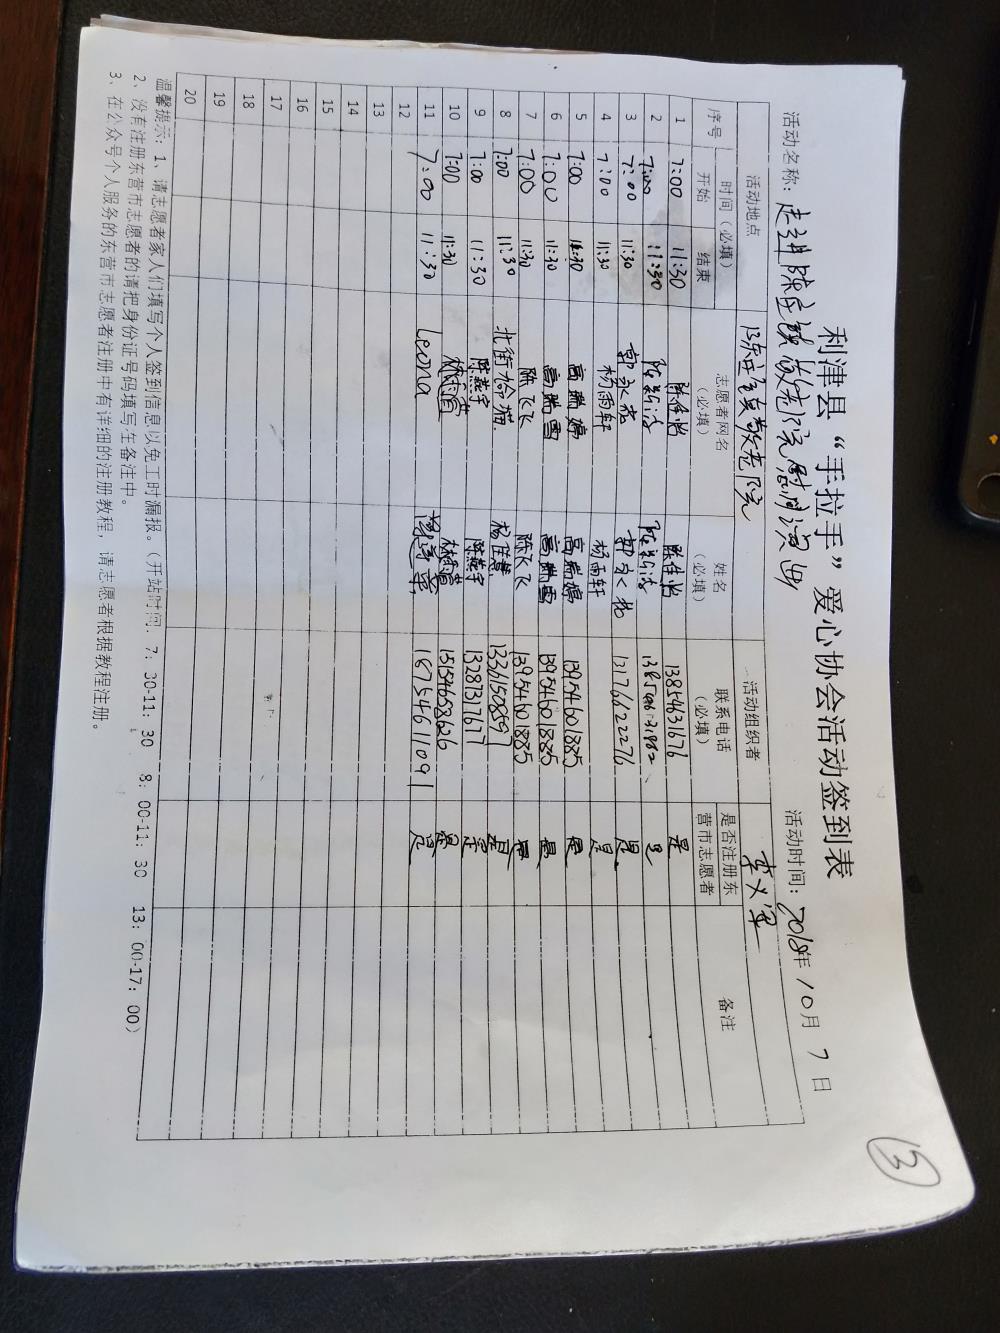 利津县“手拉手”爱心协会活动签到表
活动名称：走进陈庄镇敬老院慰问演出 活动时间：2018年10月7日
活动地点 陈庄镇敬老院 活动组织者 李义军
序号 时间（必填） 志愿者网名（必填） 姓名（必填） 联系电话（必填） 是否注册东营市志愿者 备注
开始 结束
1 7:00 11:30 陈佳怡 陈佳怡 13854631676 是
2 7:00 11:30 是
3 7:00 11:30 13176622276 是
4 7:00 11:30 杨雨轩 杨雨轩 是
5 7:00 11:30 高瑞婷 高瑞婷 13954601885 是
6 7:00 11:30 高瑞雪 高瑞雪 13954601885 是
7 7:00 11:30 陈飞飞 陈飞飞 13954601885 是
8 7:00 11:30 北街拾猫 杨佳慧 13361508597 是
9 7:00 11:30 陈燕宇 陈燕宇 13287317677 是
10 7:00 11:30 15154658626 是
11 7:00 11:30 Leona 18754611091 是
12
13
14
15
16
17
18
19
20
温馨提示：1、请志愿者家人们填写个人签到信息以免工时漏报。（开站时间：7：30-11：30 8：00-11：30 13：00-17：00）
2、没有注册东营市志愿者的请把身份证号码填写在备注中。
3、在公众号个人服务的东营市志愿者注册中有详细的注册教程，请志愿者根据教程注册。
3